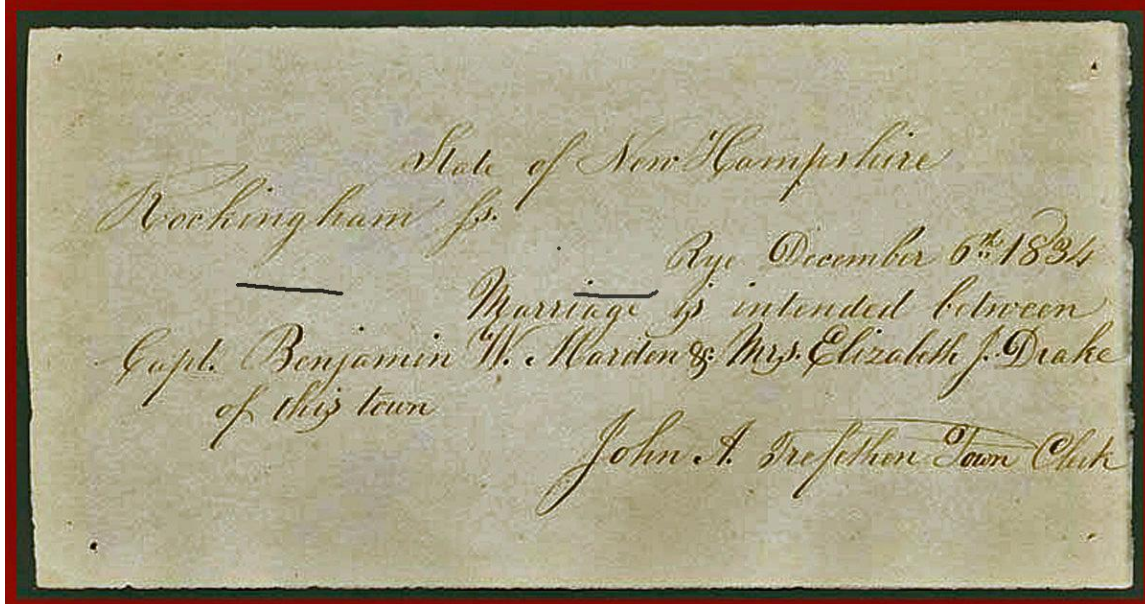 State of New Hampshire
Rockingham ss.
Rye December 6th 1834
Marriage is intended between
Capt. Benjamin W. Marden & Mrs. Elizabeth J. Drake
of this town
John A. Trefethen Town Clerk